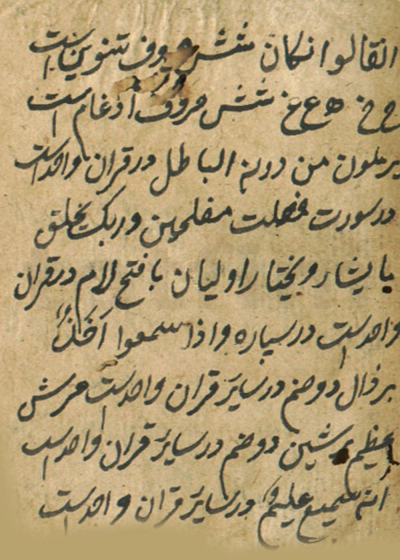 انقالوا انکان شش حروف تنوین است
ح خ ه ع غ شش حروف ادغام است
یرملون من دونه الباطل در قران واحد است
در سورت مفلحین وربک یخلق
ما یشاء ویختار اولیان با فتح لام در قران
واحد است در سیپاره واذا سمعوا
بر ذال دو ضم در سایر قران واحد است عرش
عظیم بر شین دو ضم در سایر قران واحد است
سمیع علیم در سایر قران واحد است